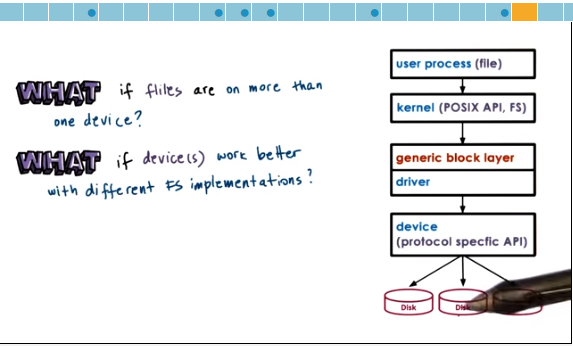 WHAT if fliles are on more than
one device?
WHAT if device(s) work better
with different FS implementations?
user process (file)
kernel (POSIX API, FS)
generic block layer
driver
device
(protocol specfic API)
Disk